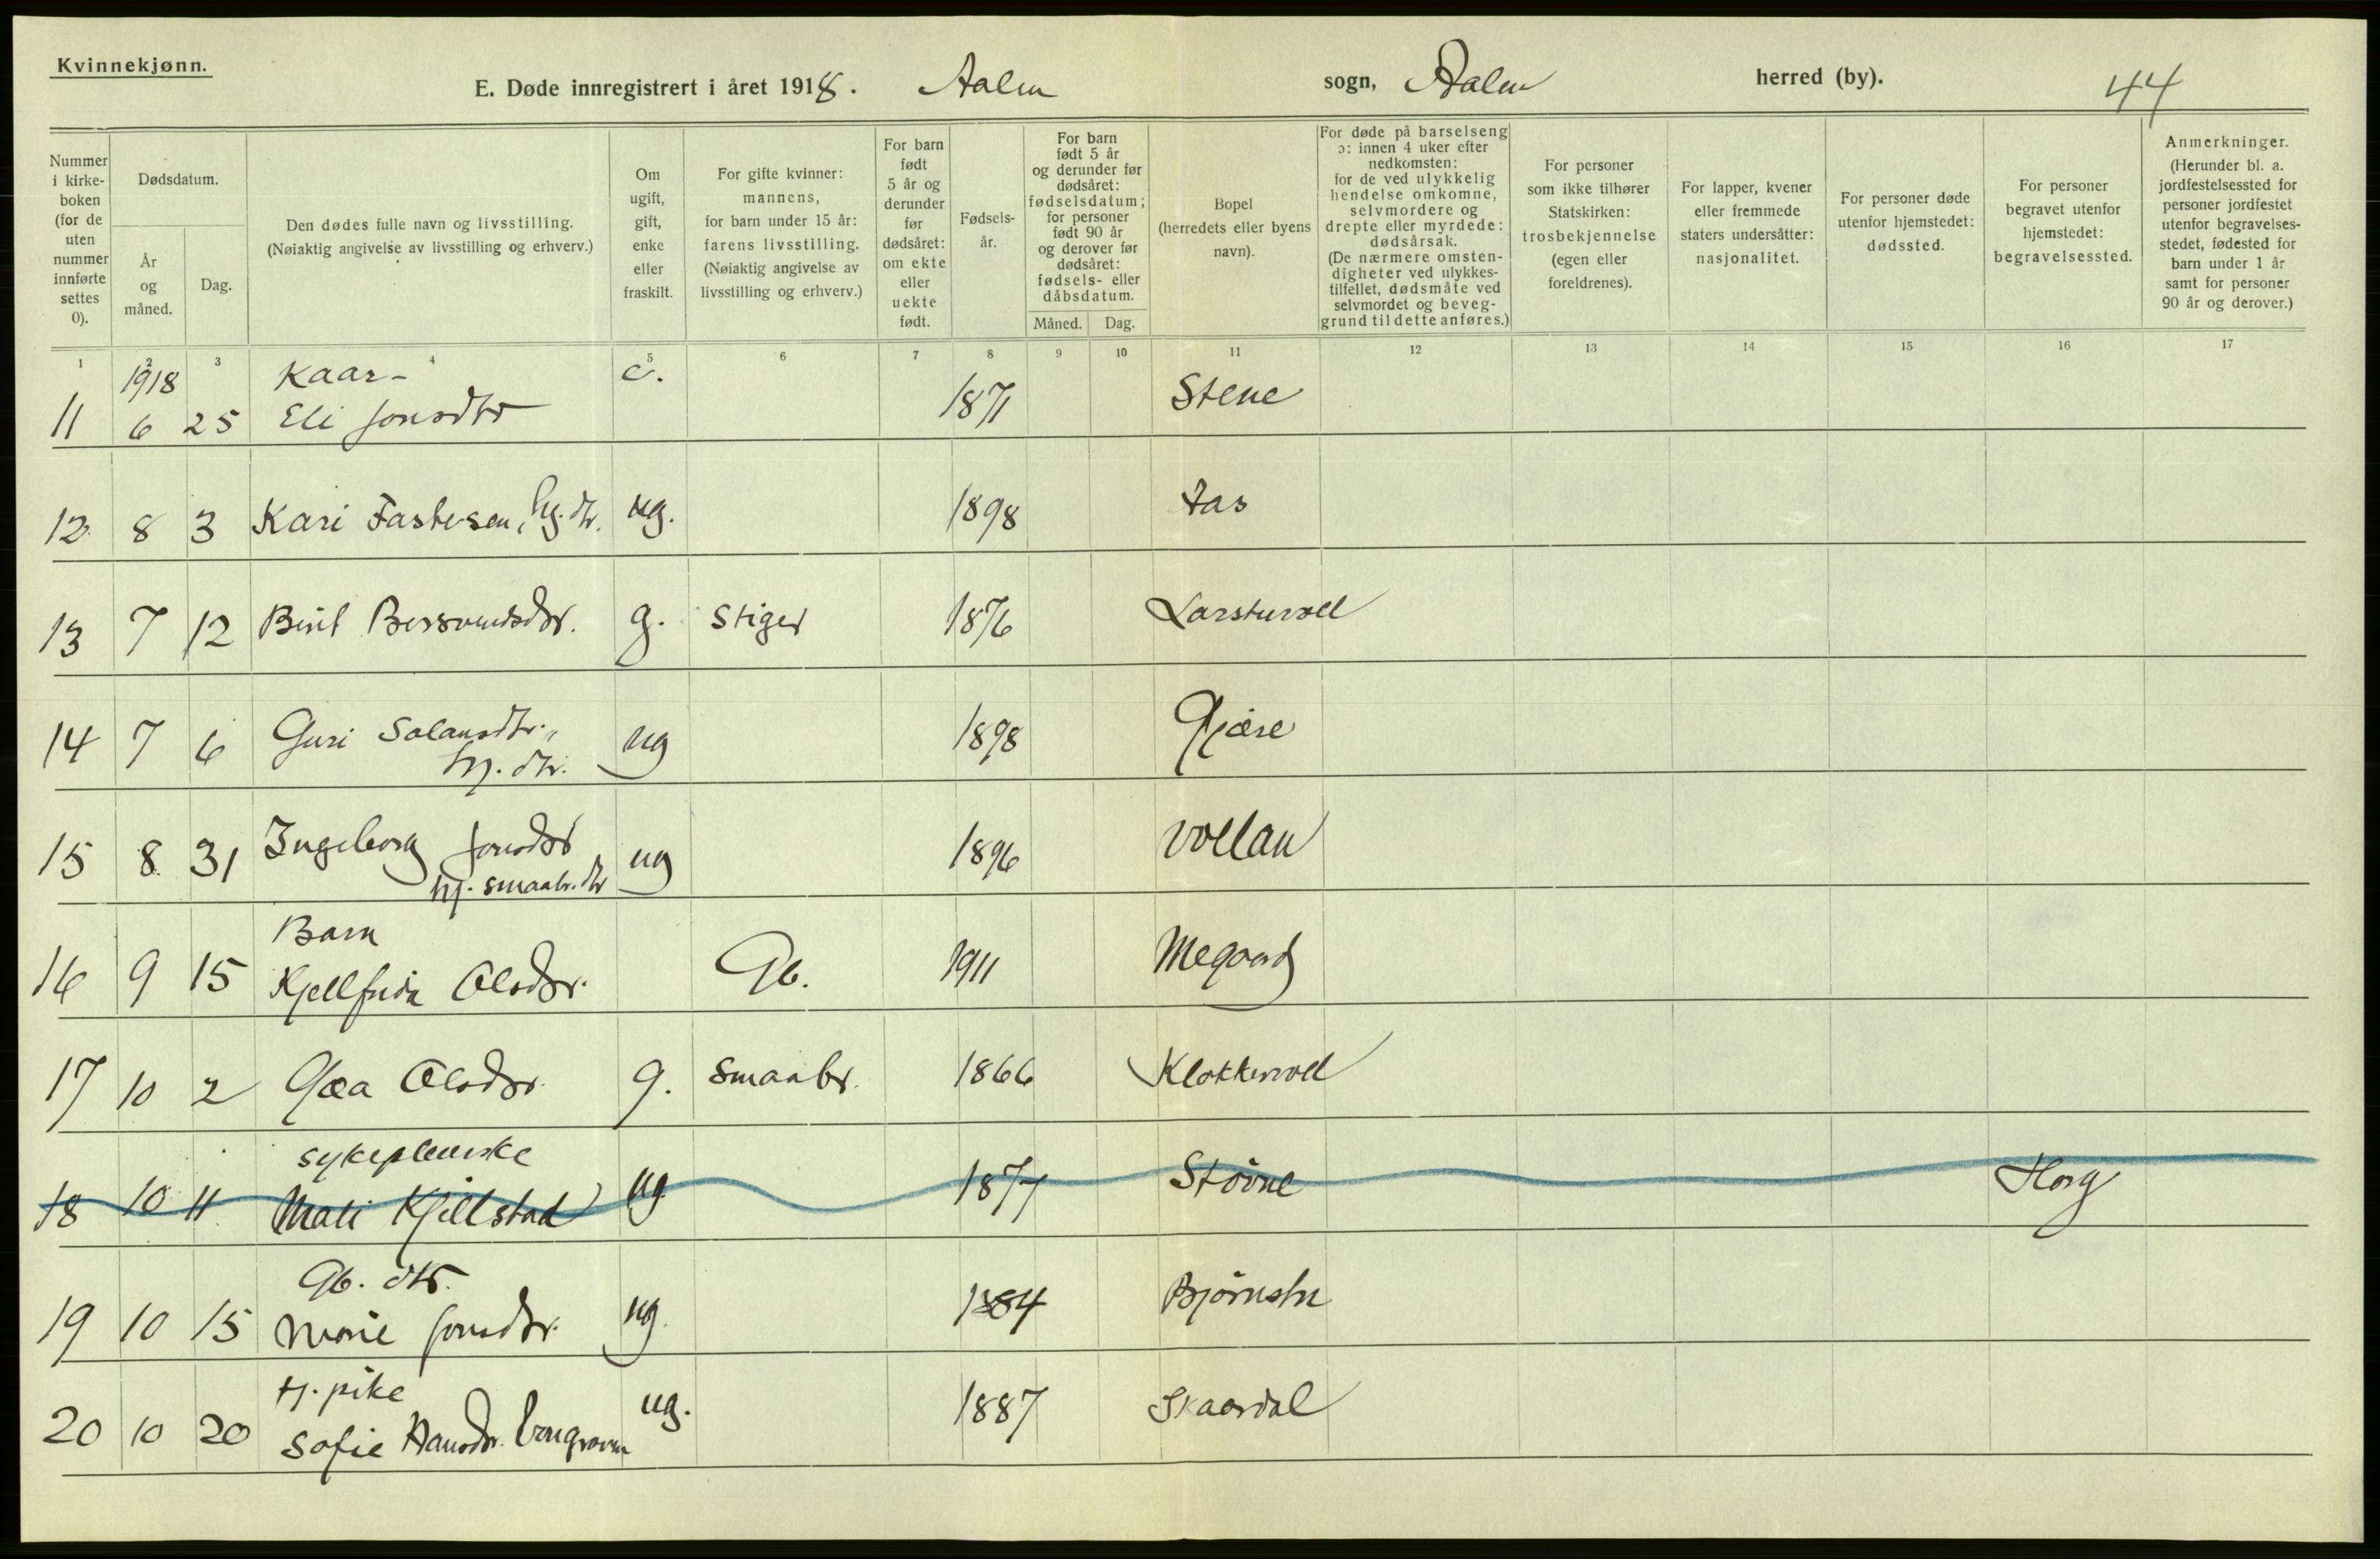 Kvinnekjønn.
E. Døde innregistrert i året 1918. Aalen sogn, Aalen herred (by). 44
Nummer i kirke-boken (for de uten nummer innførte settes 0).
Dødsdatum.
År og måned.
Dag.
Den dødes fulle navn og livsstilling. (Nøiaktig angivelse av livsstilling og erhverv.)
Om ugift, gift, enke eller fraskilt.
For gifte kvinner: mannens, for barn under 15 år: farens livsstilling. (Nøiaktig angivelse av livsstilling og erhverv.)
For barn født 5 år og derunder før dødsåret: om ekte eller uekte født.
Fødsels-år.
For barn født 5 år og derunder før dødsåret: fødselsdatum; for personer født 90 år og derover før dødsåret: fødsels- eller dåbsdatum.
Måned.
Dag.
Bopel (herredets eller byens navn).
For døde på barselseng ɔ: innen 4 uker efter nedkomsten: for de ved ulykkelig hendelse omkomne, selvmordere og drepte eller myrdede: dødsårsak. (De nærmere omsten-digheter ved ulykkes-tilfellet, dødsmåte ved selvmordet og beveg-grund til dette anføres.)
For personer som ikke tilhører Statskirken: trosbekjennelse (egen eller foreldrenes).
For lapper, kvener eller fremmede staters undersåtter: nasjonalitet.
For personer døde utenfor hjemstedet: dødssted.
For personer begravet utenfor hjemstedet: begravelsessted.
Anmerkninger. (Herunder bl. a. jordfestelsessted for personer jordfestet utenfor begravelses-stedet, fødested for barn under 1 år samt for personer 90 år og derover.)
1 2 3 4 5 6 7 8 9 10 11 12 13 14 15 16 17
1918 Kaar- e.
11 6 25 Eli Jonsdtr 1871 Stene
12 8 3 Kari Fastesen, hj. dtr. ug. 1898 Aas
13 7 12 Berit Bersvendsdtr. g. Stiger 1876 Larsturvoll
14 7 6 Guri Salamsdtr., ug 1898 Gjære
hj. dtr.
15 8 31 Ingeborg Jonsdtr ug 1896 Vollan
hj. smaabr. dtr
Barn
16 9 15 Kjellfrida Olsdtr. Gb. 1911 Megaard
17 10 2 Gæa Olsdtr. g. Smaabr. 1866 Klokkervoll
sykepleierske
18 10 11 Mali Kjellstad ug 1877 Støvne Horg
Gb. dtr.
19 10 15 Marie Jonsdtr. ug. 1884 Bjørnstu
Hj. pike
20 10 20 Sofie Hansdtr. ug. 1887 Skaardal